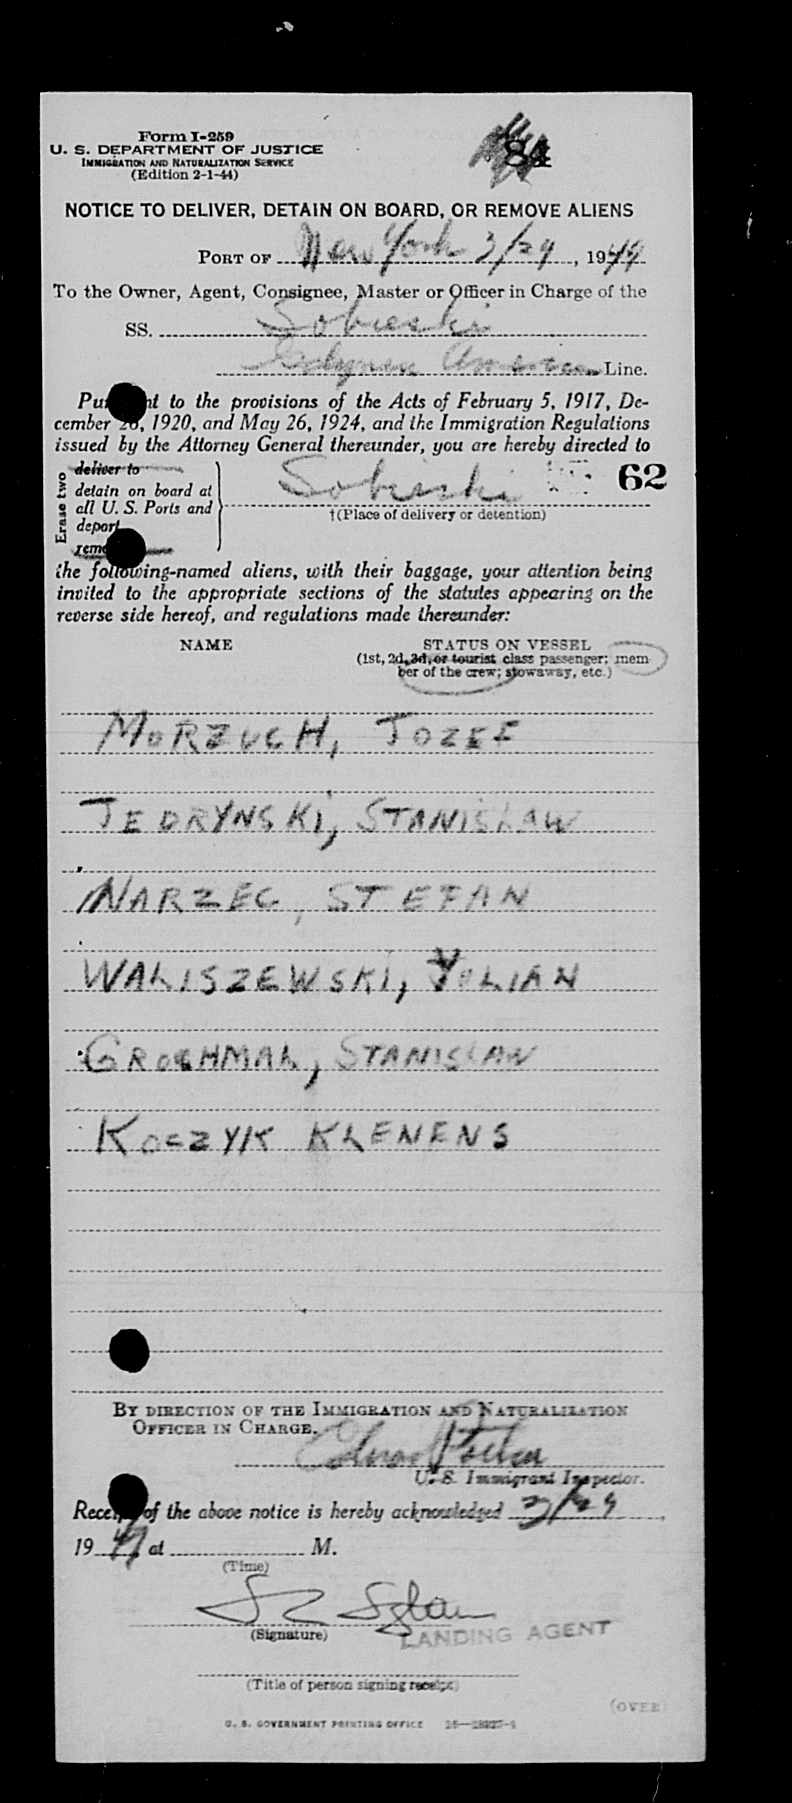 Form I-259
U. S. DEPARTMENT OF JUSTICE
IMMIGRATION AND NATURALIZATION SERVICE
(Edition 2-1-44)
84
NOTICE TO DELIVER, DETAIN ON BOARD, OR REMOVE ALIENS
PORT OF New York 3/29, 1949
To the Owner, Agent, Consignee, Master or Officer in Charge of the
SS. Sobieski
Gdynia America Line.
Pursuant to the provisions of the Acts of February 5, 1917, De-
cember 26, 1920, and May 26, 1924, and the Immigration Regulations
issued by the Attorney General thereunder, you are hereby directed to
Erase two
deliver to
detain on board at
all U. S. Ports and
deport
remove
Sobieski 62
†(Place of delivery or detention)
the following-named aliens, with their baggage, your attention being
invited to the appropriate sections of the statutes appearing on the
reverse side hereof, and regulations made thereunder:
NAME STATUS ON VESSEL
(1st, 2d, 3d, or tourist class passenger; mem-
ber of the crew; stowaway, etc.)
MORZUCH, JOZEF
JEDRYNSKI, STANISLAW
NARZEC, STEFAN
WALISZEWSKI, YULIAN
GROCHMAL, STANISLAW
KOCZYK KLENENS
BY DIRECTION OF THE IMMIGRATION AND NATURALIZATION
OFFICER IN CHARGE.
U. S. Immigrant Inspector.
Receipt of the above notice is hereby acknowledged 3/29,
1949 at M.
(Time)
(Signature)
LANDING AGENT
(Title of person signing receipt)
(OVER)
U. S. GOVERNMENT PRINTING OFFICE